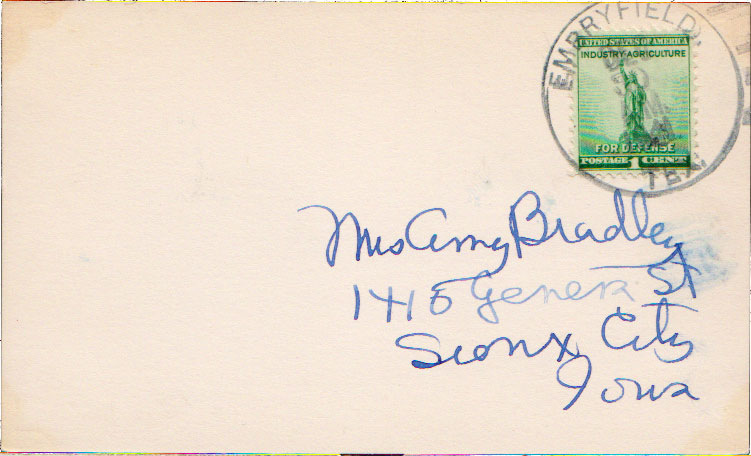 EMBRYFIELD,
UNITED STATES OF AMERICA
INDUSTRY-AGRICULTURE
FOR DEFENSE
POSTAGE 1 CENT
TEX.
Mrs Amy Bradley
1415 Geneva St
Sioux City
Iowa